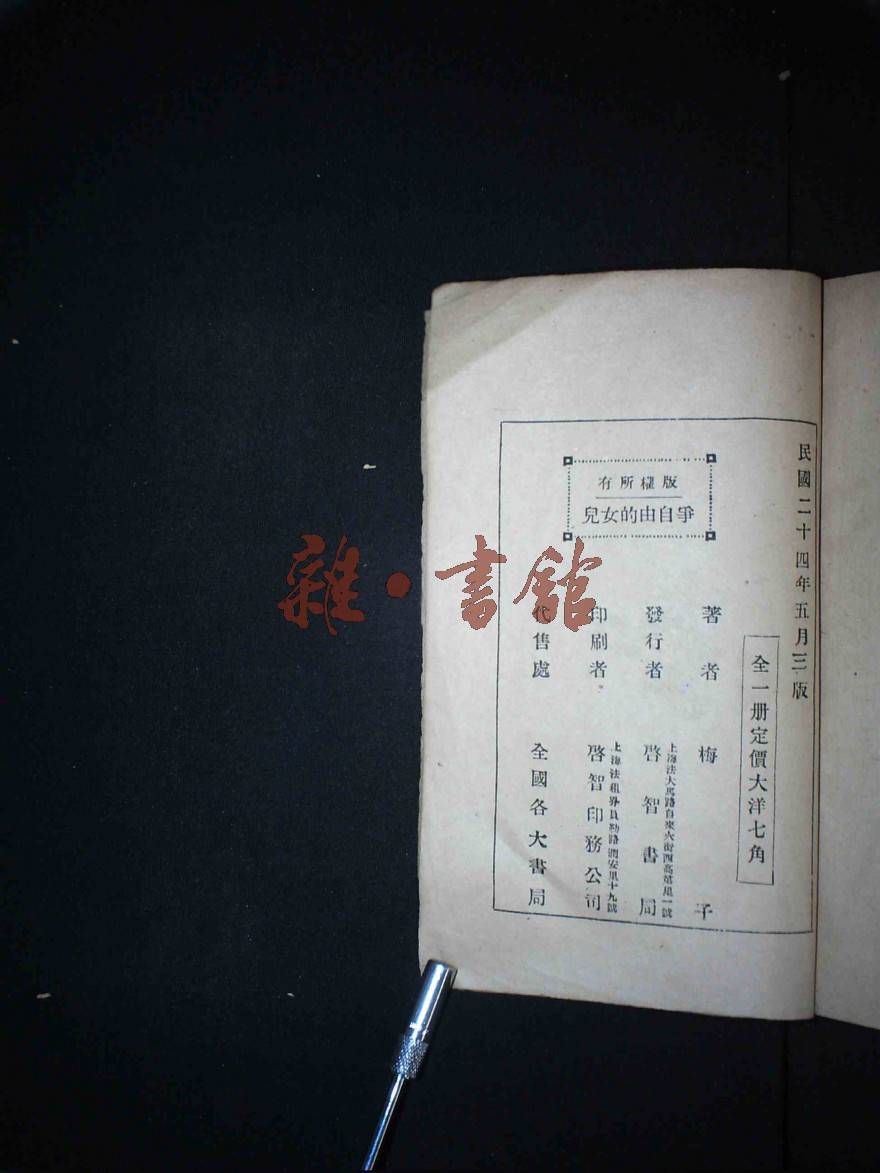 民國二十四年五月三版
全一册定價大洋七角
版權所有
爭自由的女兒
著者 梅子
發行者 啓智書局
上海法大馬路自來火街西高第里一號
印刷者 啓智印務公司
上海法租界貝勒路潤安里十九號
代售處 全國各大書局
雜·書館